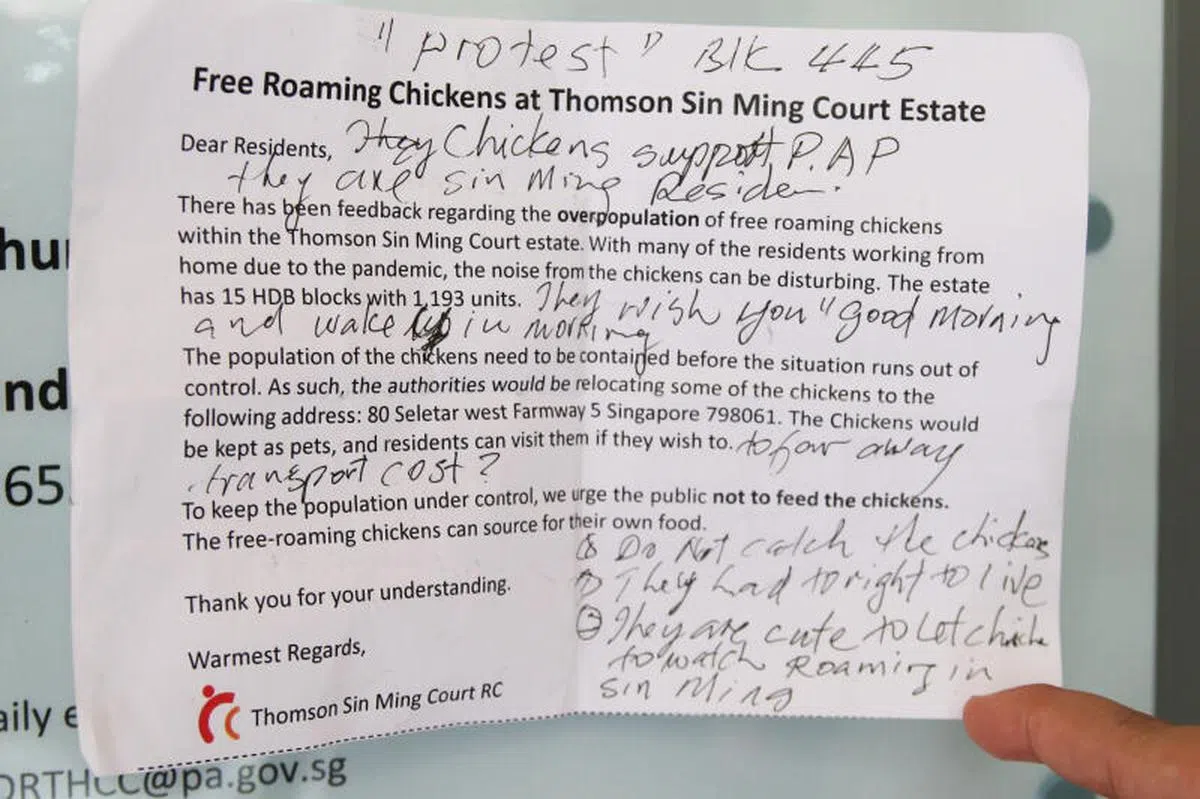 " protest " Blk 445
Free Roaming Chickens at Thomson Sin Ming Court Estate
Dear Residents, They Chickens support P.A P
they are sin Ming Residen.
There has been feedback regarding the overpopulation of free roaming chickens
within the Thomson Sin Ming Court estate. With many of the residents working from
home due to the pandemic, the noise from the chickens can be disturbing. The estate
has 15 HDB blocks with 1,193 units. They wish you "good Morning
and wake up in morning
The population of the chickens need to be contained before the situation runs out of
control. As such, the authorities would be relocating some of the chickens to the
following address: 80 Seletar west Farmway 5 Singapore 798061. The Chickens would
be kept as pets, and residents can visit them if they wish to. to far away
transport cost ?
To keep the population under control, we urge the public not to feed the chickens.
The free-roaming chickens can source for their own food.
Do Not catch the chickens
They had to right to live
Thank you for your understanding.
They are cute to let
to watch Roaming in
sin Ming
Warmest Regards,
Thomson Sin Ming Court RC
hu
nd
65
aily e
ORTHCC@pa.gov.sg